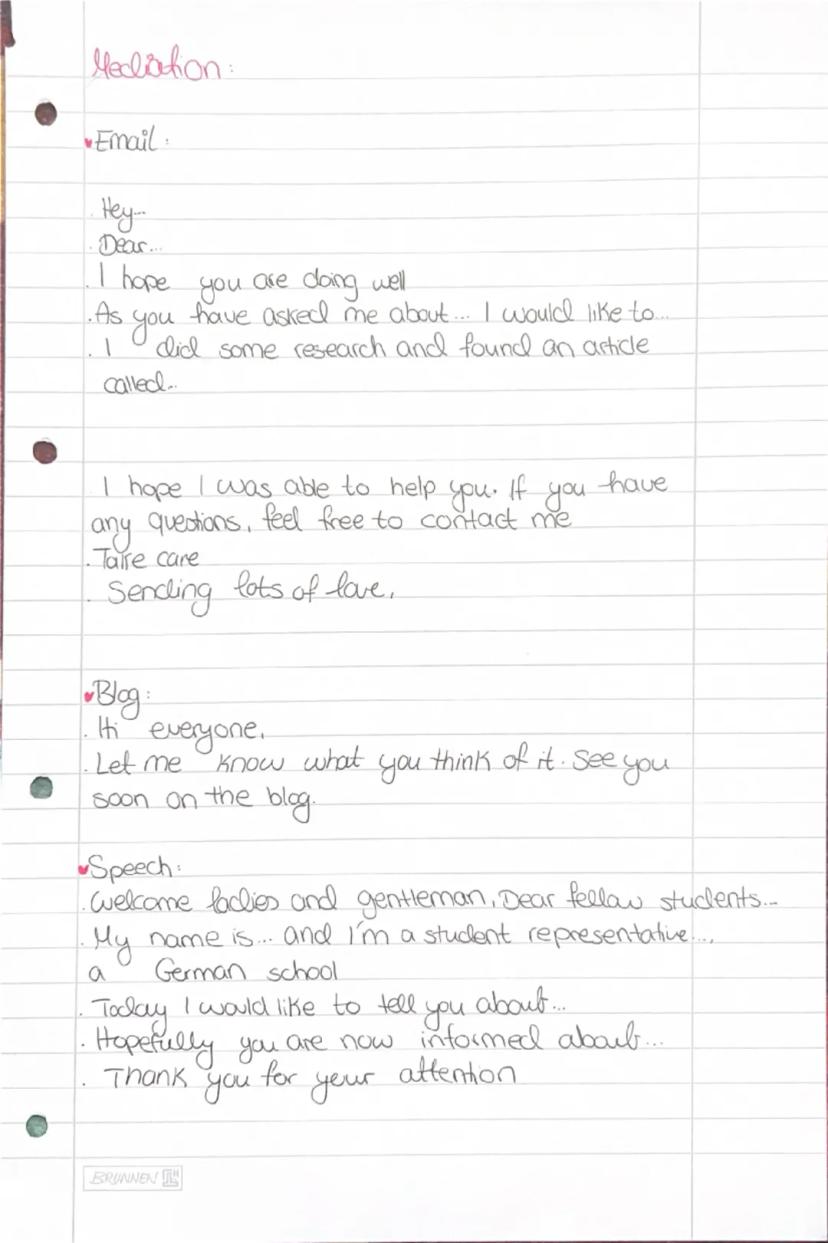 Mediation:
Email:
. Hey...
. Dear...
. I hope you are doing well
. As you have asked me about... I would like to...
. I did some research and found an article
called...
I hope I was able to help you. If you have
any questions, feel free to contact me
. Take care
. Sending lots of love,
Blog:
. Hi everyone,
. Let me know what you think of it. See you
soon on the blog.
Speech:
. Welcome ladies and gentleman, Dear fellow students...
. My name is... and I'm a student representative...,
a German school
. Today I would like to tell you about...
. Hopefully you are now informed about...
. Thank you for your attention
BRUNNEN